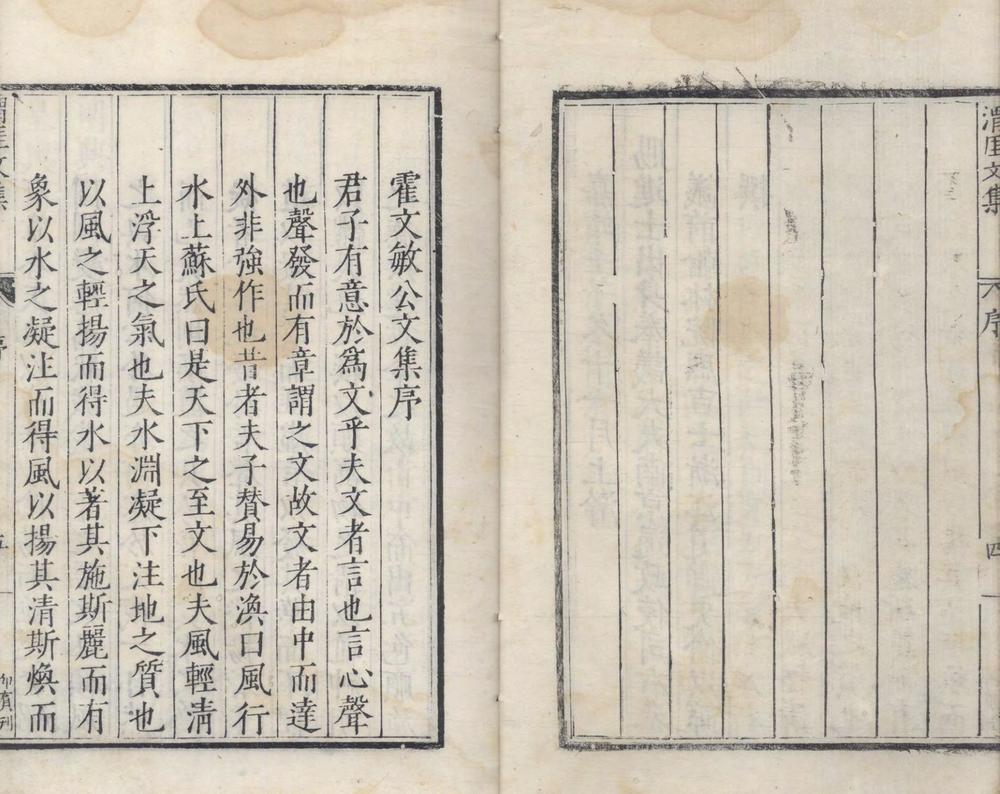 渭厓文集
序
四
霍文敏公文集序
君子有意於爲文乎夫文者言也言心聲
也聲發而有章謂之文故文者由中而達
外非強作也昔者夫子賛易於渙曰風行
水上蘇氏曰是天下之至文也夫風輕淸
上浮天之氣也夫水淵凝下注地之質也
以風之輕揚而得水以著其施斯麗而有
象以水之凝注而得風以揚其清斯煥而
渭厓文集
序
五